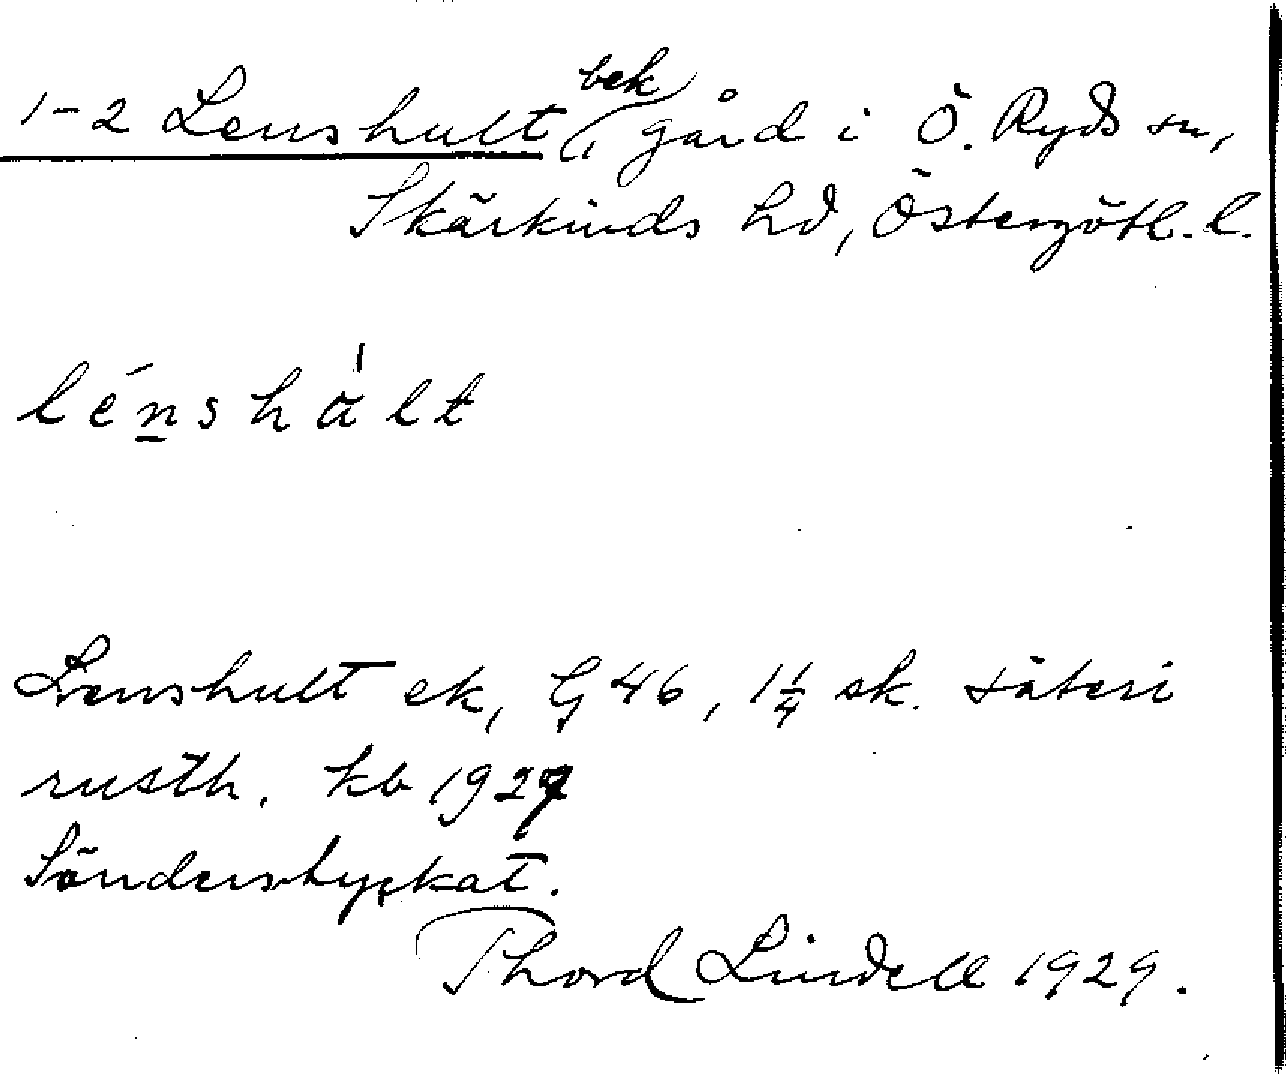 1-2 Lenshult, bek gård i Ö. Ryds sn,
Skärkinds hd, Östergötl. l.
lénshált
Lenshult ek, G 46, 1 1/4 sk. säteri
rusth. kb 1927
Sönderstyckat.
Thord Lindell 1929.